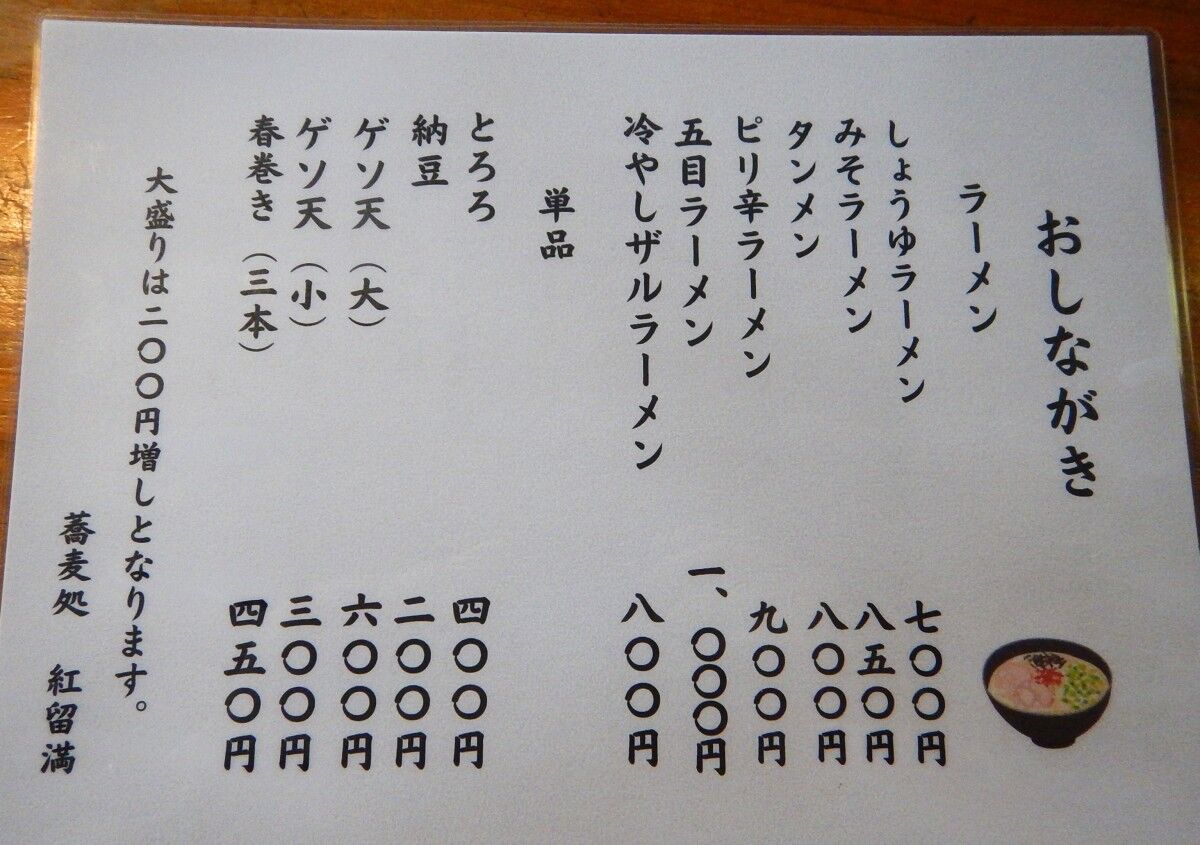 おしながき
ラーメン
しょうゆラーメン 七〇〇円
みそラーメン 八五〇円
タンメン 八〇〇円
ピリ辛ラーメン 九〇〇円
五目ラーメン 一、〇〇〇円
冷やしザルラーメン 八〇〇円
単品
とろろ 四〇〇円
納豆 二〇〇円
ゲソ天（大） 六〇〇円
ゲソ天（小） 三〇〇円
春巻き（三本） 四五〇円
大盛りは二〇〇円増しとなります。
蕎麦処 紅留満